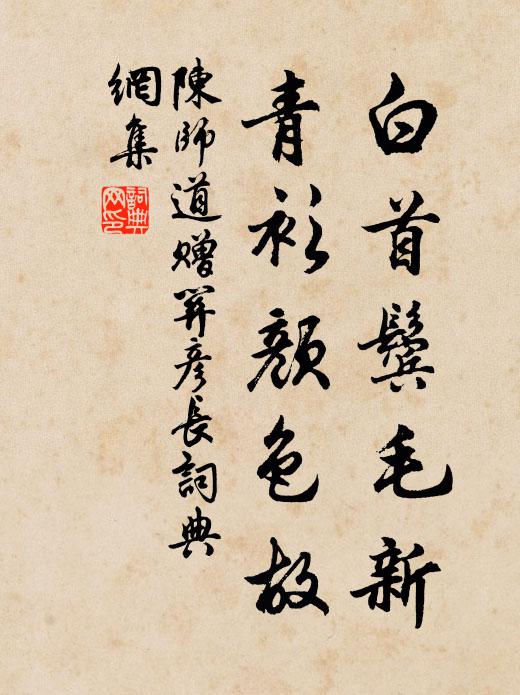 白首鬓毛新
青衫顔色故
陳師道贈笄彦長詞典
網集
詞典網印